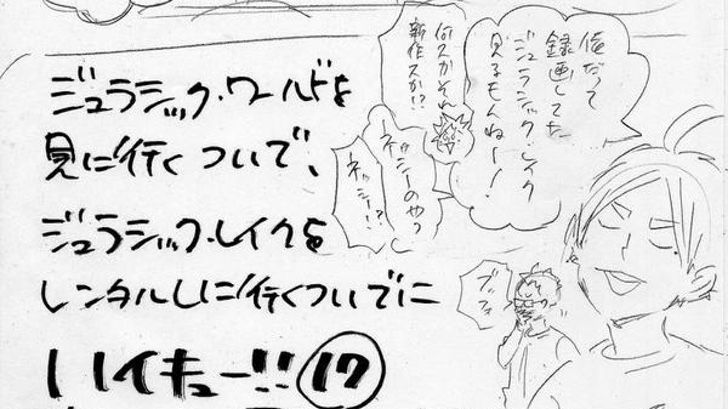 ジュラシック・ワールドを
見に行くついで、
ジュラシック・レイクを
レンタルしに行くついでに
ハイキュー!!⑰
俺だって
録画してた
ジュラシック・レイク
見るもんねー!
何スかそれ
新作スか!?
ネッシーのやつ
ネッシー!?
ブッフォ